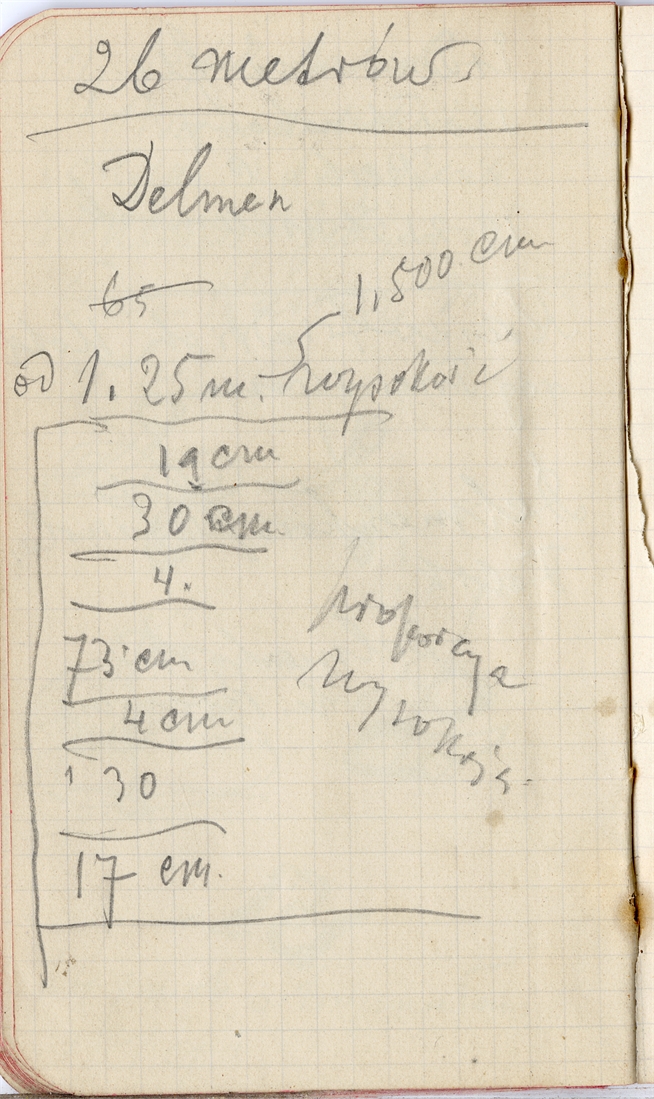 26 metrów
Delmen
65
1,500 cm
od 1.25 m. wysokość
19 cm
30 cm.
4.
73 cm
4 cm
1 30
17 cm.
proporcya
wysokości